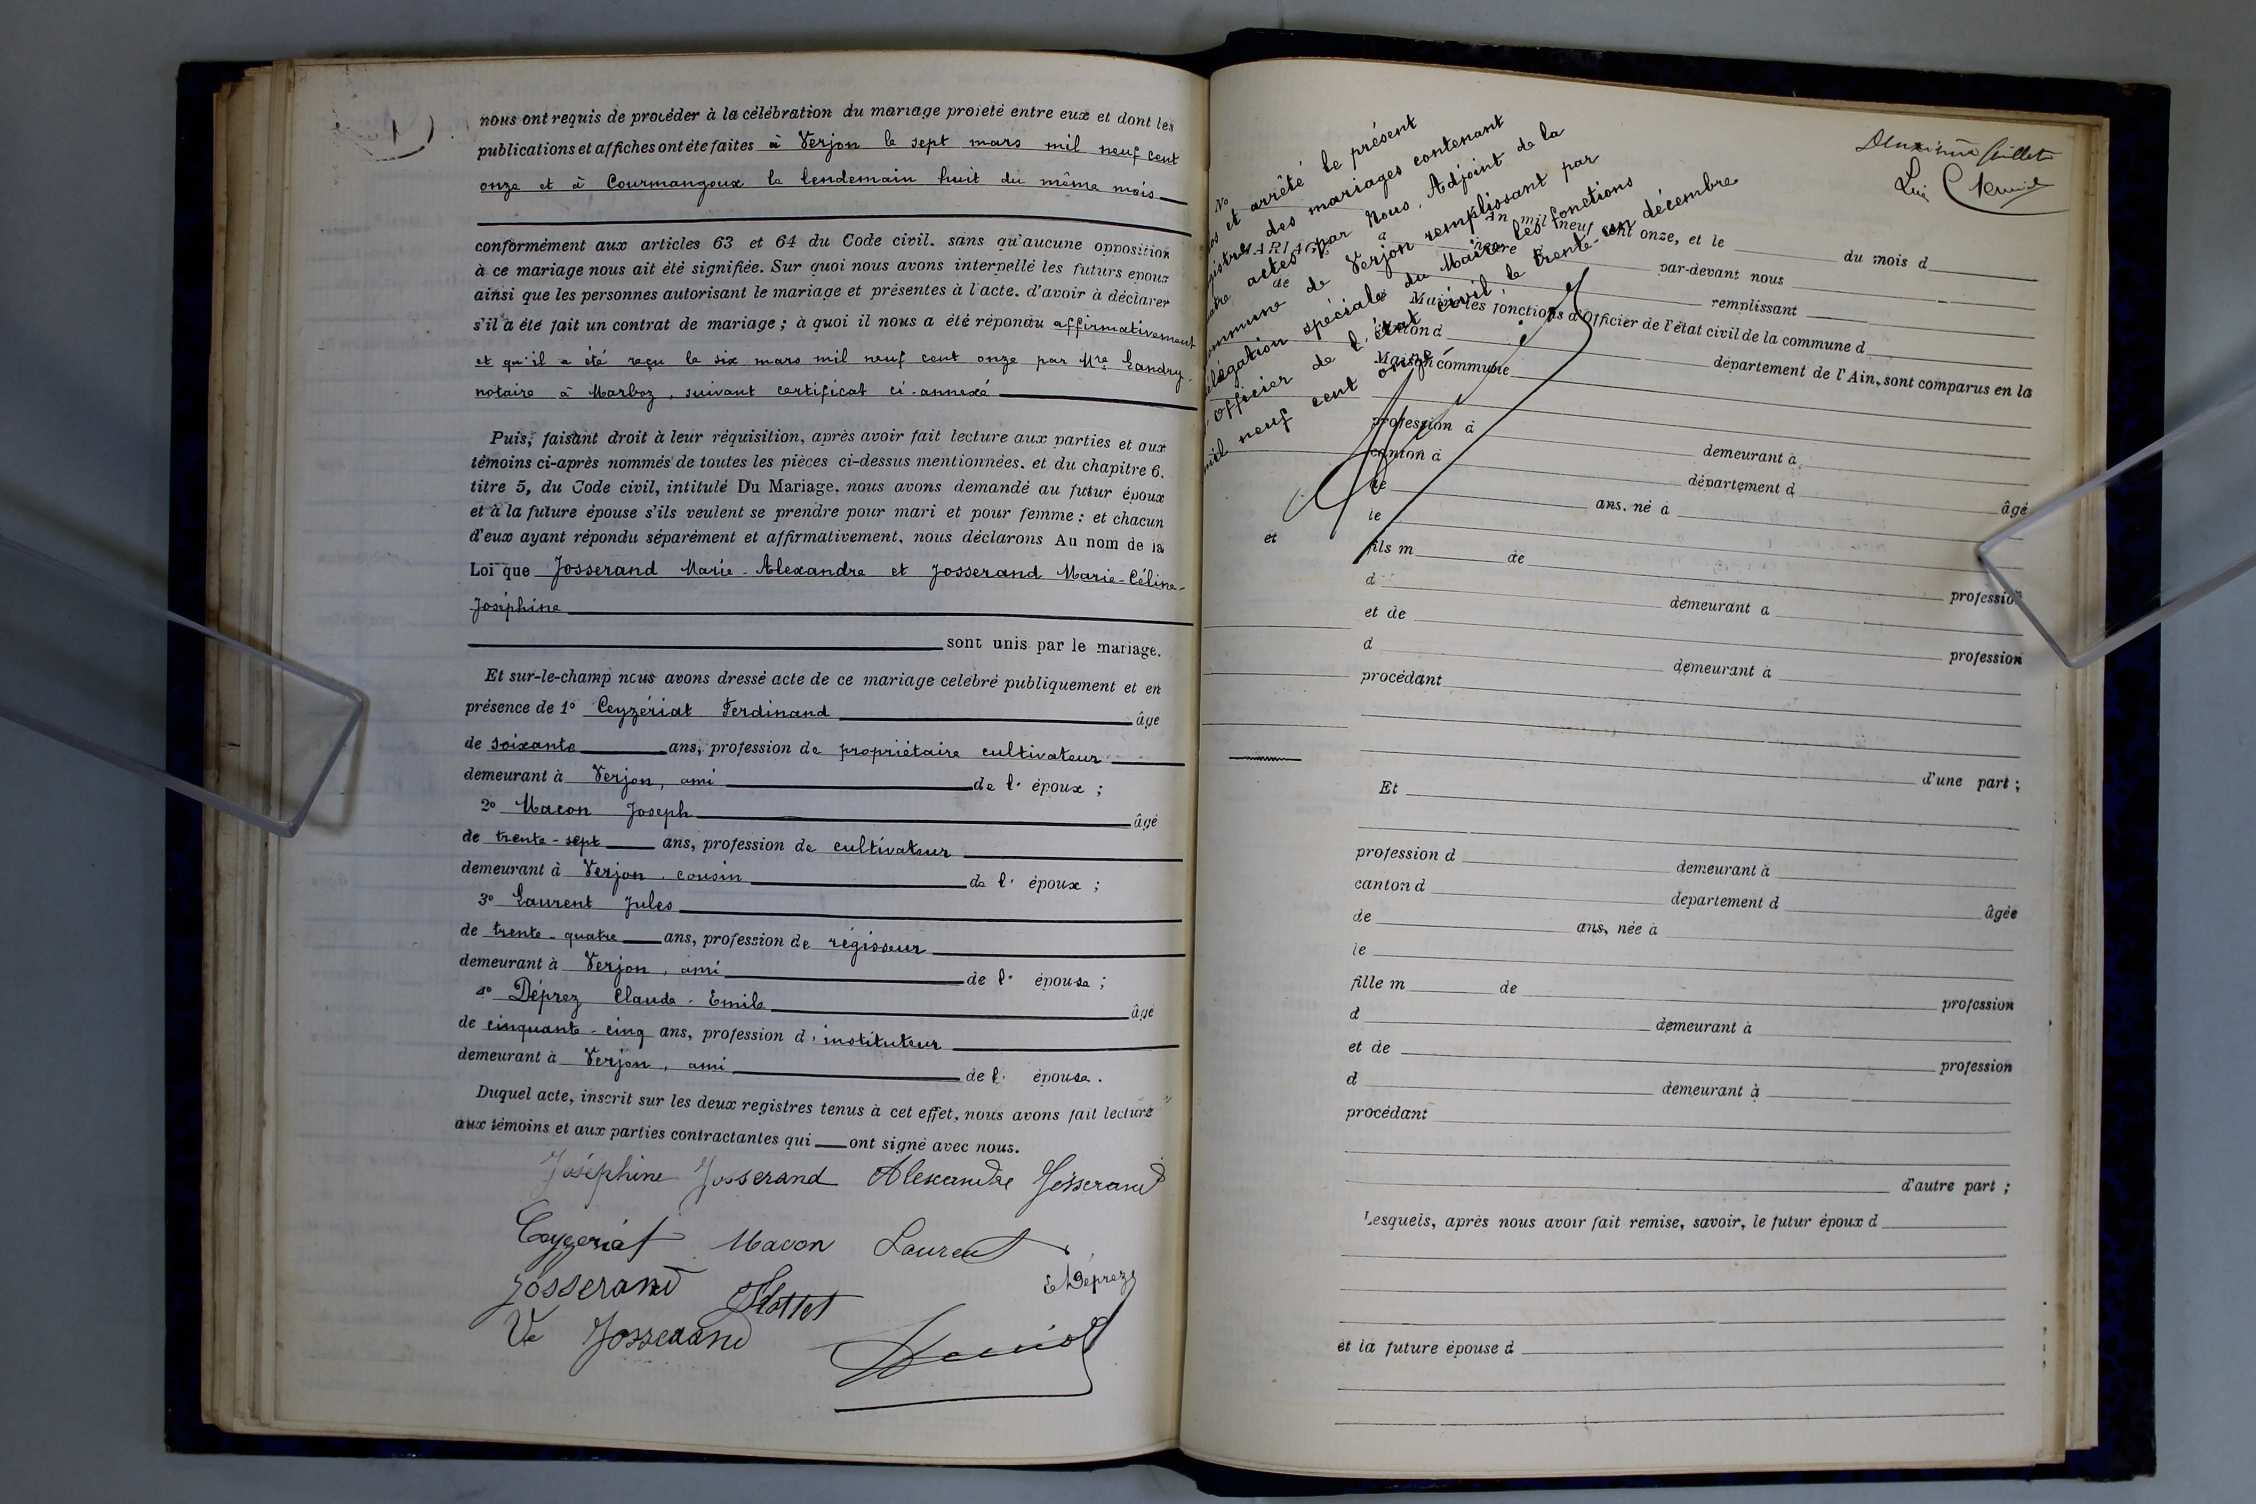 nous ont requis de procéder à la célébration du mariage projeté entre eux et dont les
publications et affiches ont été faites à Verjon le sept mars mil neuf cent
onze et à Courmangoux le lendemain huit du même mois
conformément aux articles 63 et 64 du Code civil. sans qu'aucune opposition
à ce mariage nous ait été signifiée. Sur quoi nous avons interpellé les futurs époux
ainsi que les personnes autorisant le mariage et présentes à l'acte. d'avoir à déclarer
s'il a été fait un contrat de mariage ; à quoi il nous a été répondu affirmativement
et qu'il a été reçu le six mars mil neuf cent onze par Mre Landry
notaire à Marboz, suivant certificat ci-annexé
Puis, faisant droit à leur réquisition, après avoir fait lecture aux parties et aux
témoins ci-après nommés de toutes les pièces ci-dessus mentionnées. et du chapitre 6.
titre 5, du Code civil, intitulé Du Mariage. nous avons demandé au futur époux
et à la future épouse s'ils veulent se prendre pour mari et pour femme : et chacun
d'eux ayant répondu séparément et affirmativement, nous déclarons Au nom de la
Loi que Josserand Marie-Alexandre et Josserand Marie-Céline-
Joséphine
sont unis par le mariage.
Et sur-le-champ nous avons dressé acte de ce mariage célébré publiquement et en
présence de 1° Ceyzériat Ferdinand âgé
de soixante ans, profession de propriétaire cultivateur
demeurant à Verjon, ami de l' époux ;
2° Macon Joseph âgé
de trente-sept ans, profession de cultivateur
demeurant à Verjon, cousin de l' époux ;
3° Laurent Jules
de trente-quatre ans, profession de régisseur
demeurant à Verjon, ami de l' épouse ;
4° Déprez Claude-Emile âgé
de cinquante-cinq ans, profession d'instituteur
demeurant à Verjon, ami de l' épouse.
Duquel acte, inscrit sur les deux registres tenus à cet effet, nous avons fait lecture
aux témoins et aux parties contractantes qui ont signé avec nous.
Joséphine Josserand Alexandre Josserand
Ceyzeriat Macon Laurent
E Déprez
Josserand
Ve Josserand
Deuxième feuillet
et arrêté le présent
des mariages contenant
actes par Nous, Adjoint de la
commune de Verjon remplissant par
délégation spéciale du Maire les fonctions
d'officier de l'état civil, le trente-un décembre
mil neuf cent onze.
No
MARIAGE
de
et
An mil neuf cent onze, et le du mois d
à heure par-devant nous
Maire remplissant
les fonctions d'Officier de l'état civil de la commune d
canton d département de l'Ain, sont comparus en la
Maison commune
profession d demeurant à
canton d département d âgé
de ans, né à
le
fils m de profession
d demeurant à
et de profession
d demeurant à
procédant
d'une part ;
Et
profession d demeurant à
canton d département d âgée
de ans, née à
le
fille m de profession
d demeurant à
et de profession
d demeurant à
procédant
d'autre part ;
Lesquels, après nous avoir fait remise, savoir, le futur époux d
et la future épouse d